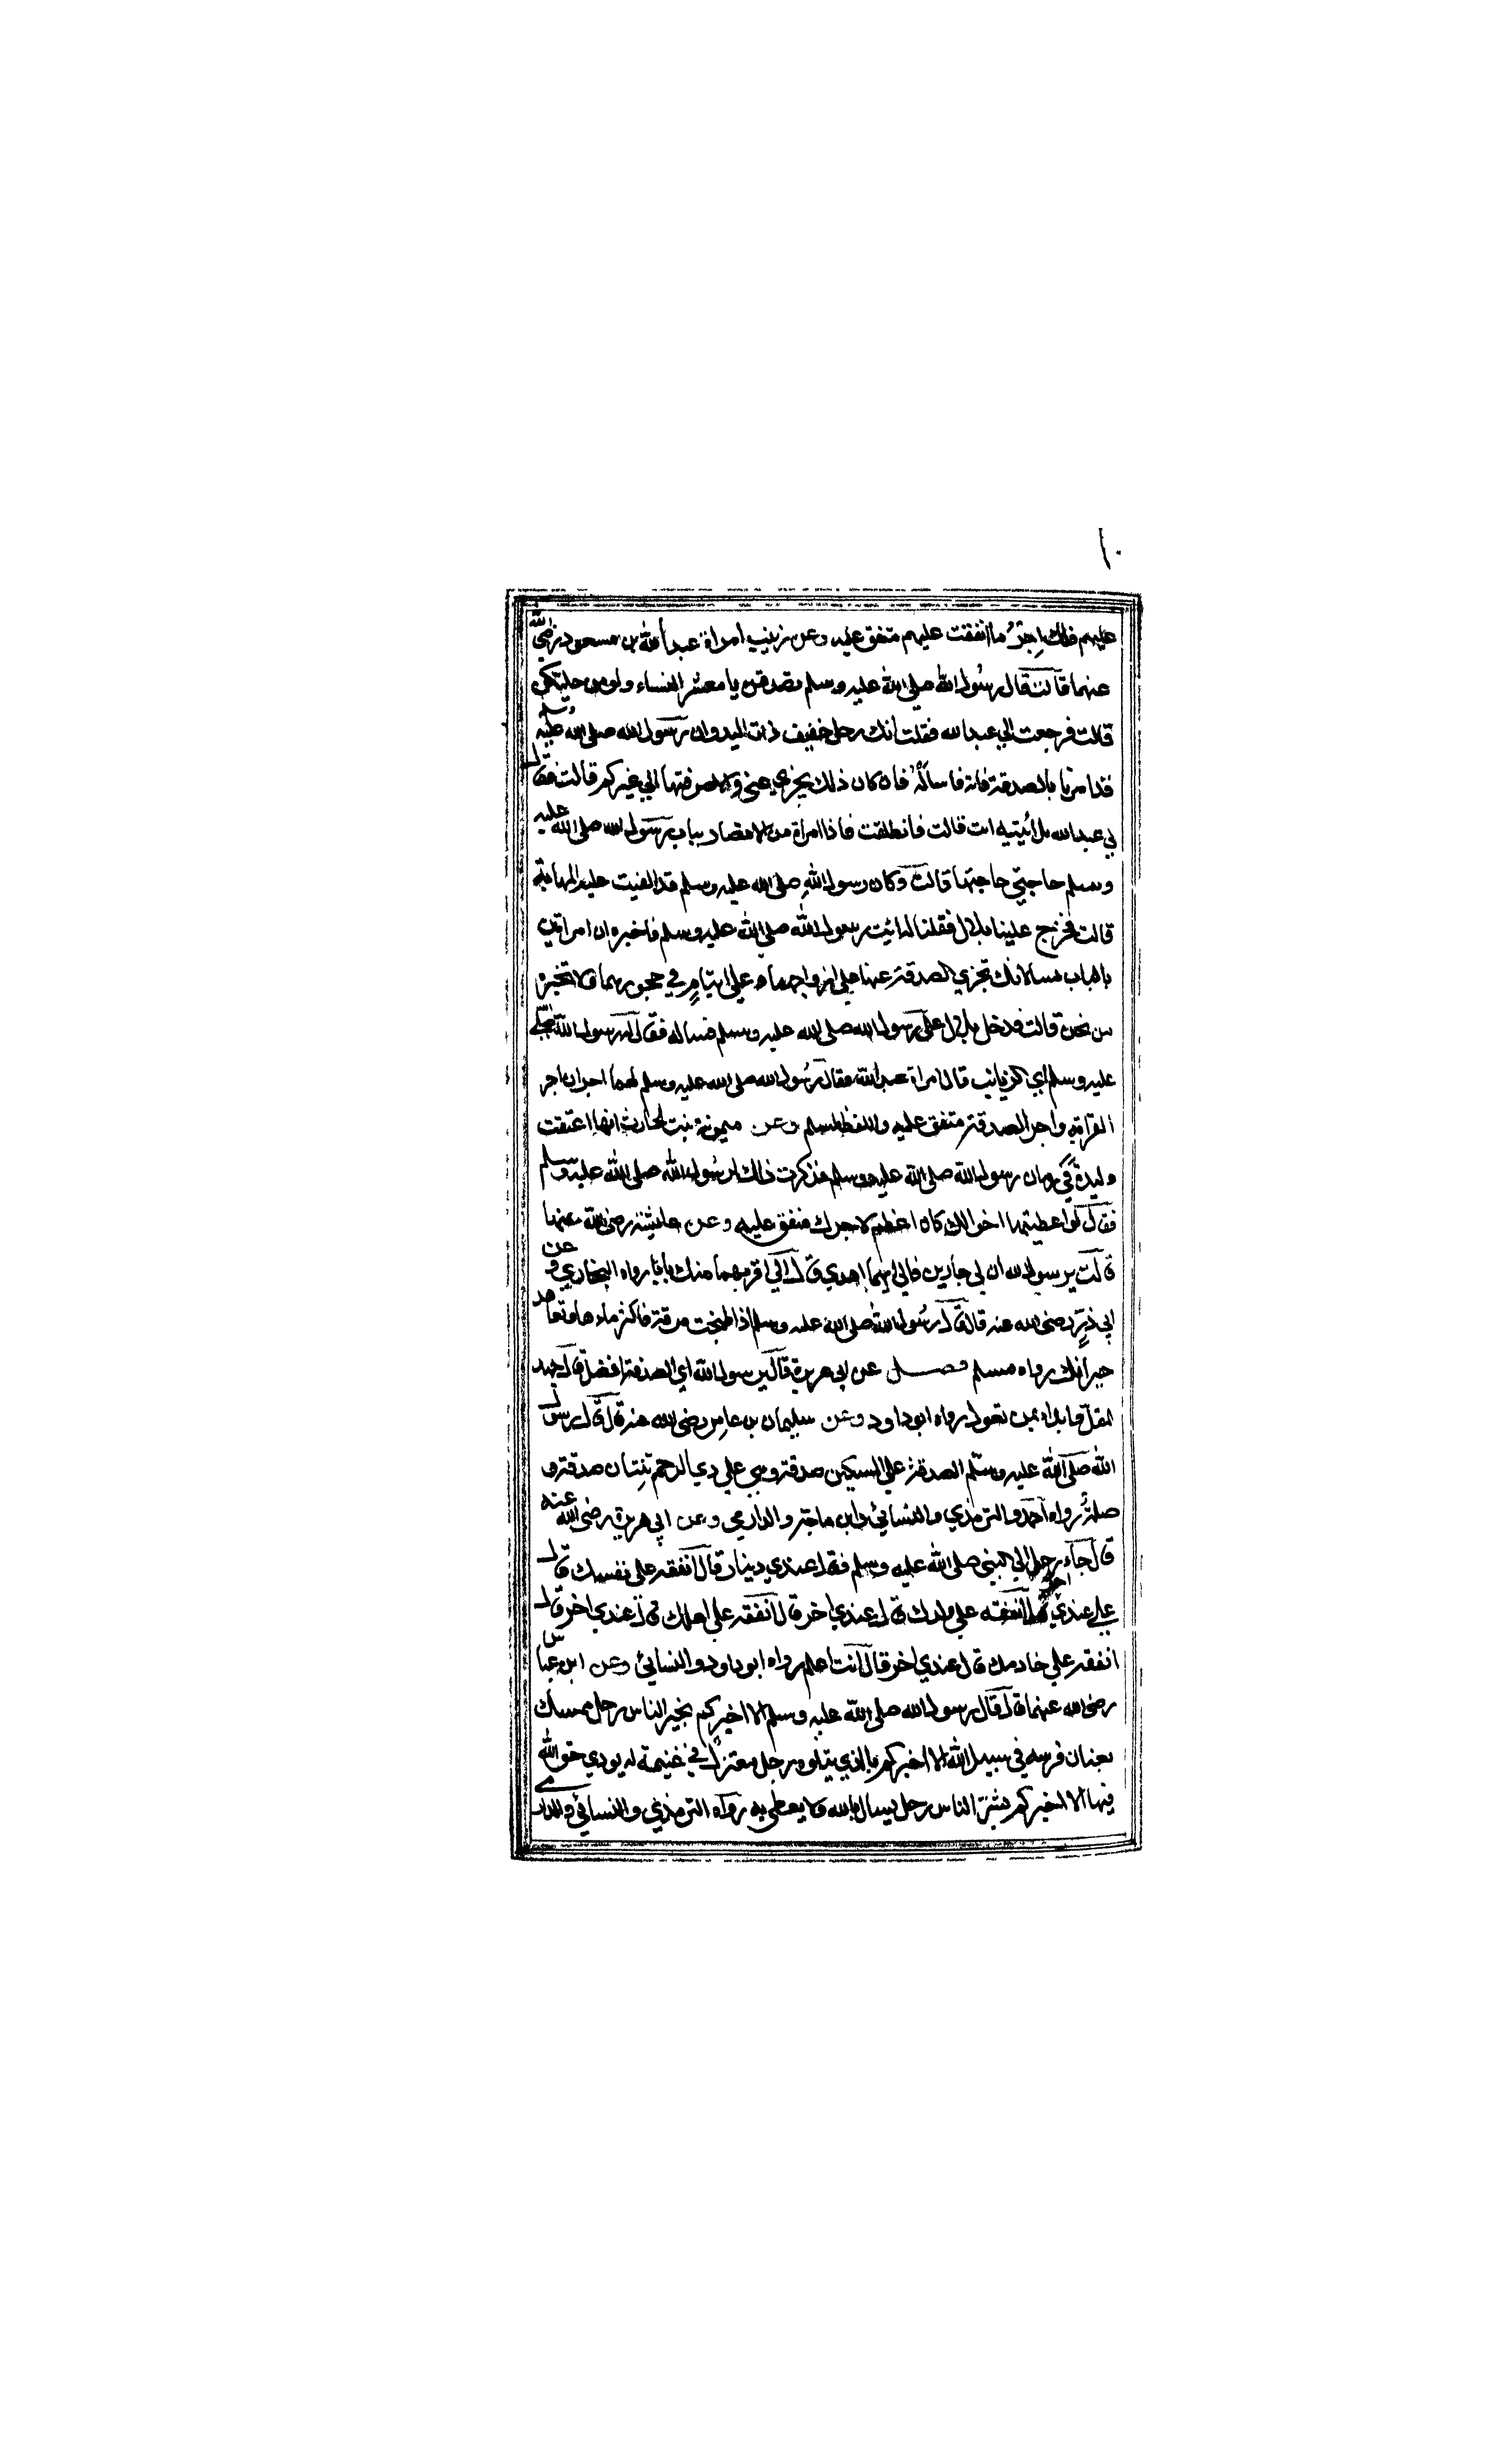 ١٠
عليهم فلك اجرُ ما انفقت عليهم متفق عليه وعن زينب امراة عبد الله بن مسعود رضي الله
عنهما قالت قال رسول الله صلى الله عليه وسلم تصدقن يا معشر النساء ولو من حليكن
قالت فرجعت الي عبد الله فقلت انك رجل خفيف ذات اليد وان رسول الله صلى الله عليه وسلم
قد امرنا بالصدقة فاته فاساله فان كان ذلك يجزي عني والا صرفتها الي غيركم قالت فقال
لي عبد الله بل ائتيه انت قالت فانطلقت فاذا امراة من الانصار بباب رسول الله صلى الله عليه
وسلم حاجتي حاجتها قالت وكان رسول الله صلى الله عليه وسلم قد القيت عليه المهابة
قالت فخرج علينا بلال فقلنا له ائت رسول الله صلى الله عليه وسلم فاخبره ان امراتين
بالباب تسالانك تجزي الصدقة عنهما على ازواجهما وعلى ايتام في حجورهما ولا تخبره
من نحن قالت فدخل بلال على رسول الله صلى الله عليه وسلم فساله فقال له رسول الله صلى الله
عليه وسلم اي الزيانب قال امراة عبد الله فقال رسول الله صلى الله عليه وسلم لهما اجران اجر
القرابة واجر الصدقة متفق عليه واللفظ لمسلم وعن ميمونة بنت الحارث انها اعتقت
وليدة في زمان رسول الله صلى الله عليه وسلم فذكرت ذلك لرسول الله صلى الله عليه وسلم
فقال لو اعطيتها اخوالك كان اعظم لاجرك متفق عليه وعن عايشة رضي الله عنها
قالت يرسول الله ان لي جارين فالي ايهما اهدي قال الي اقربهما منك بابا رواه البخاري وعن
ابي ذر رضي الله عنه قال قال رسول الله صلى الله عليه وسلم اذا طبخت مرقة فاكثر ماءها وتعاهد
جيرانك رواه مسلم فصل عن ابي هريرة قال يرسول الله اي الصدقة افضل قال جهد
المقل وابداء بمن تعول رواه ابو داود وعن سليمان بن عامر رضي الله عنه قال قال رسول
الله صلى الله عليه وسلم الصدقة علي المسكين صدقة وهي علي ذي الرحم ثنتان صدقة و
صلة رواه احمد والترمذي والنسائي وابن ماجة والدارمي وعن ابي هريرة رضي الله عنه
قال جآء رجل الي النبي صلى الله عليه وسلم فقال عندي دينار قال انفقه على نفسك قال
عندي اخر قال انفقه علي ولدك قال عندي اخر قال انفقه علي اهلك قال عندي اخر قال
انفقه علي خادمك قال عندي اخر قال انت اعلم رواه ابو داود والنسائي وعن ابن عباس
رضي الله عنهما قال قال رسول الله صلى الله عليه وسلم الا اخبركم بخير الناس رجل ممسك
بعنان فرسه في سبيل الله الا اخبركم بالذي يتلوه رجل معتزل في غنيمة له يودي حق الله
فيها الا اخبركم بشر الناس رجل يسال بالله ولا يعطي به رواه الترمذي والنسائي والدارمي